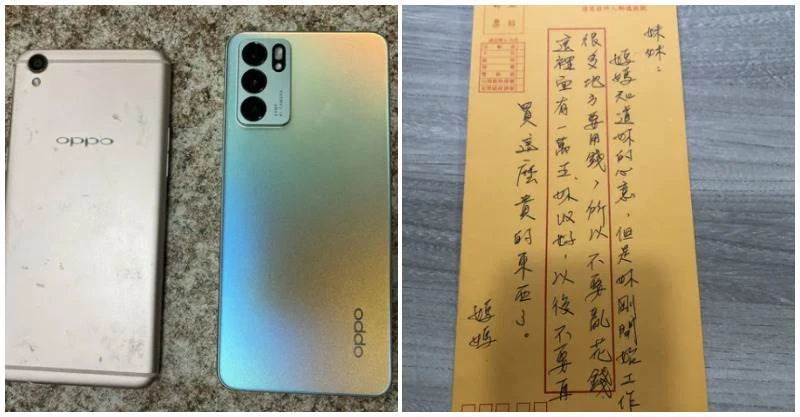 oppo
oppo
妹妹：
媽媽知道妹的心意，但是妹剛開始工作
很多地方要用錢，所以不要亂花錢
這裡面有一萬五，妹收好，以後不要再
買這麼貴的東西了。
媽媽
票